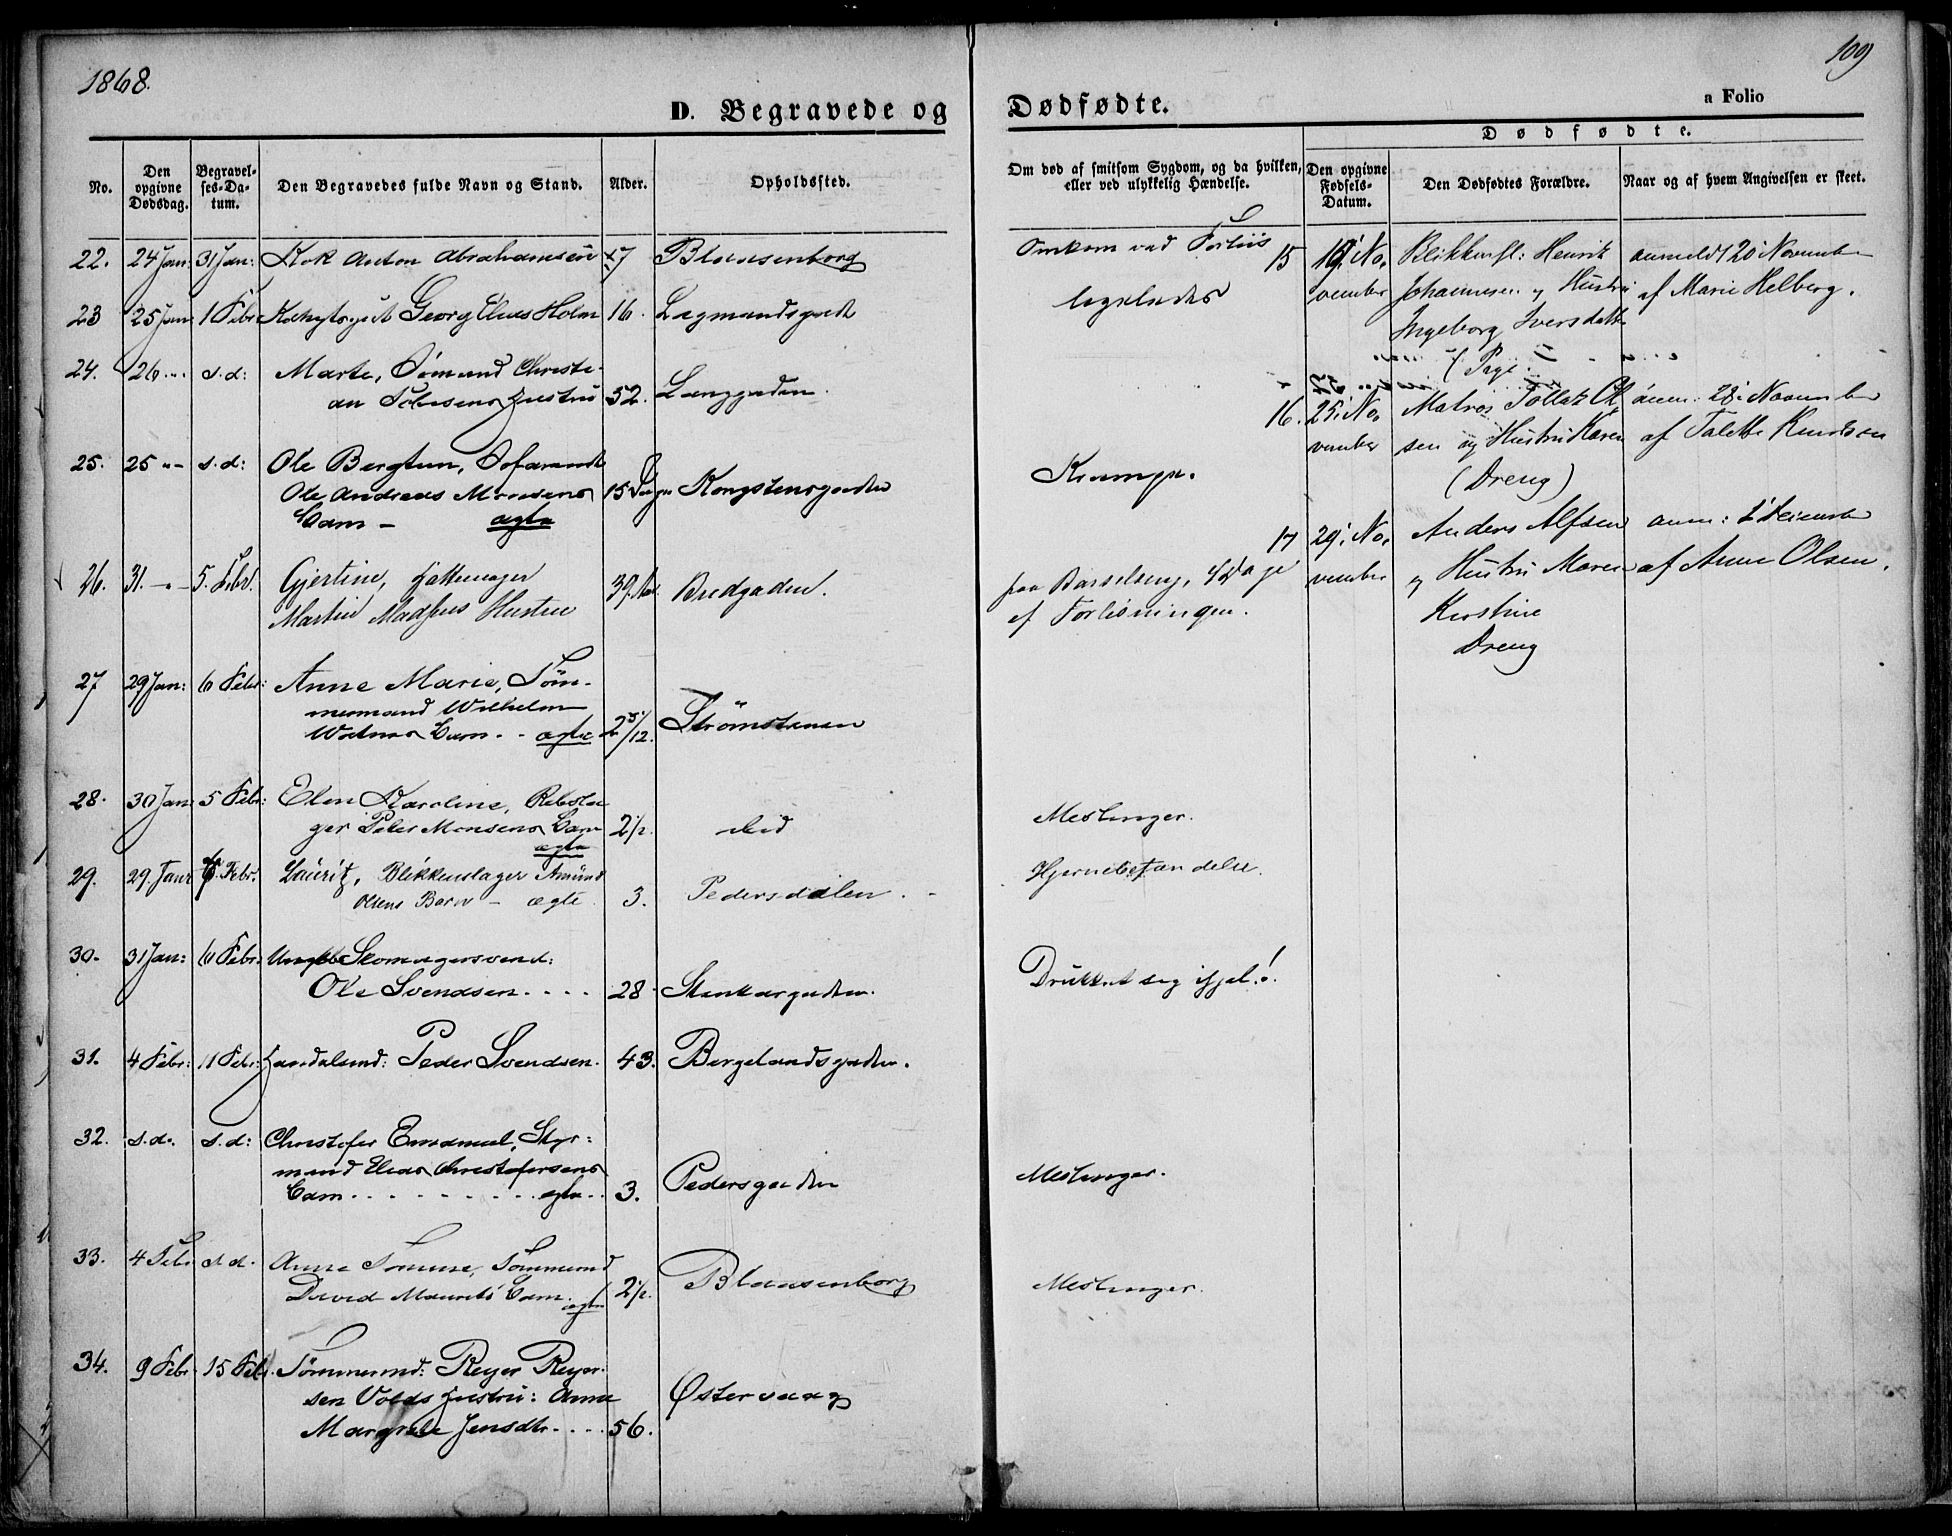 1868.
109
D. Begravede og Dødfødte.
a Folio
No.
Den opgivne Dødsdag.
Begravelses-Datum.
Den Begravedes fulde Navn og Stand.
Alder.
Opholdssted.
Om død af smitsom Sygdom, og da hvilken, eller ved ulykkelig Hændelse.
Dødfødte.
Den opgivne Fødsels-Datum.
Den Dødfødtes Forældre.
Naar og af hvem Angivelsen er skeet.
22. 24 Jan: 31 Jan: Kok Anton Abrahamsen 47 Blaasenborg
Omkom ved Forliis
23 25 Jan: 1 Febr Georg Elias Holm 16. Lagmandsgade
ligeledes
24. 26 s.d: Marte, Sömand Christi-
an Hustru 52. Langgaden.
25. 25 s.d: Ole Bergtun,
Ole Andreas Monsens 15 Dage Kongstensgaden
Krampe.
Barn - ægte
26. 31. 5. Febr. Gjertine, Hattemager 39 Bredgaden.
Martin Madssens Hustru
paa Barselseng, 4 Dage
ef. Forlösningen.
27 29 Jan: 6 Febr: Anne Marie, Töm-
mermand Wilhelm
Barn - ægte 2 5/12. Strömstenen
28. 30 Jan: 5 Febr: Elen Karoline, Rebsla-
ger Peter Monsens Barn 2½. ibid
Meslinger.
ægte
29. 29. Janr 6. Febr. Lauritz, Blikkenslager Amund
Olsens Barn - ægte. 3. Pedersdalen.
Hjernebetændelse.
30. 31 Jan: 6 Febr: Ungkl: Skomagersvend:
Ole Svendsen . . . . 28 Stenkargaden.
Drukket sig ihjel!.
31. 4 Febr: 11 Febr: Handelsmd: Peder Svendsen. 43. Bergelandsgaden.
32. s.d. s.d: Christofer Emanuel, Styr-
mand Elias Christofersens
Barn . . . . . . . . . ægte . . 3. Pedersgaden
Meslinger.
33. 4 Feb s.d. Anne Tomine, Tömmermd
David Barn. ægte 2½. Blaasenborg
Meslinger.
34. 9 Febr 15 Febr. Tömmermd: Reyer Reyer-
sen Volds Hustru: Anne
Margrete Jensdtr . . . . 56. Østervaag
15 19: No,
vember
Blikkensl: Henrik
Johannesen og Hustru
Ingeborg Iversdatter
(Pige.
anmeldt 20 November
af Marie Helberg.
16. 25: No,
vember
Matros Tollak Ol
sen og Hustru Karen
(Dreng)
anm: 28: November
af Talette Knudsen
17 29: No,
vember
Anders Alfsen
og Hustru Maren
Kirstine
Dreng
anm: 1 Decembr
af Anne Olsen.